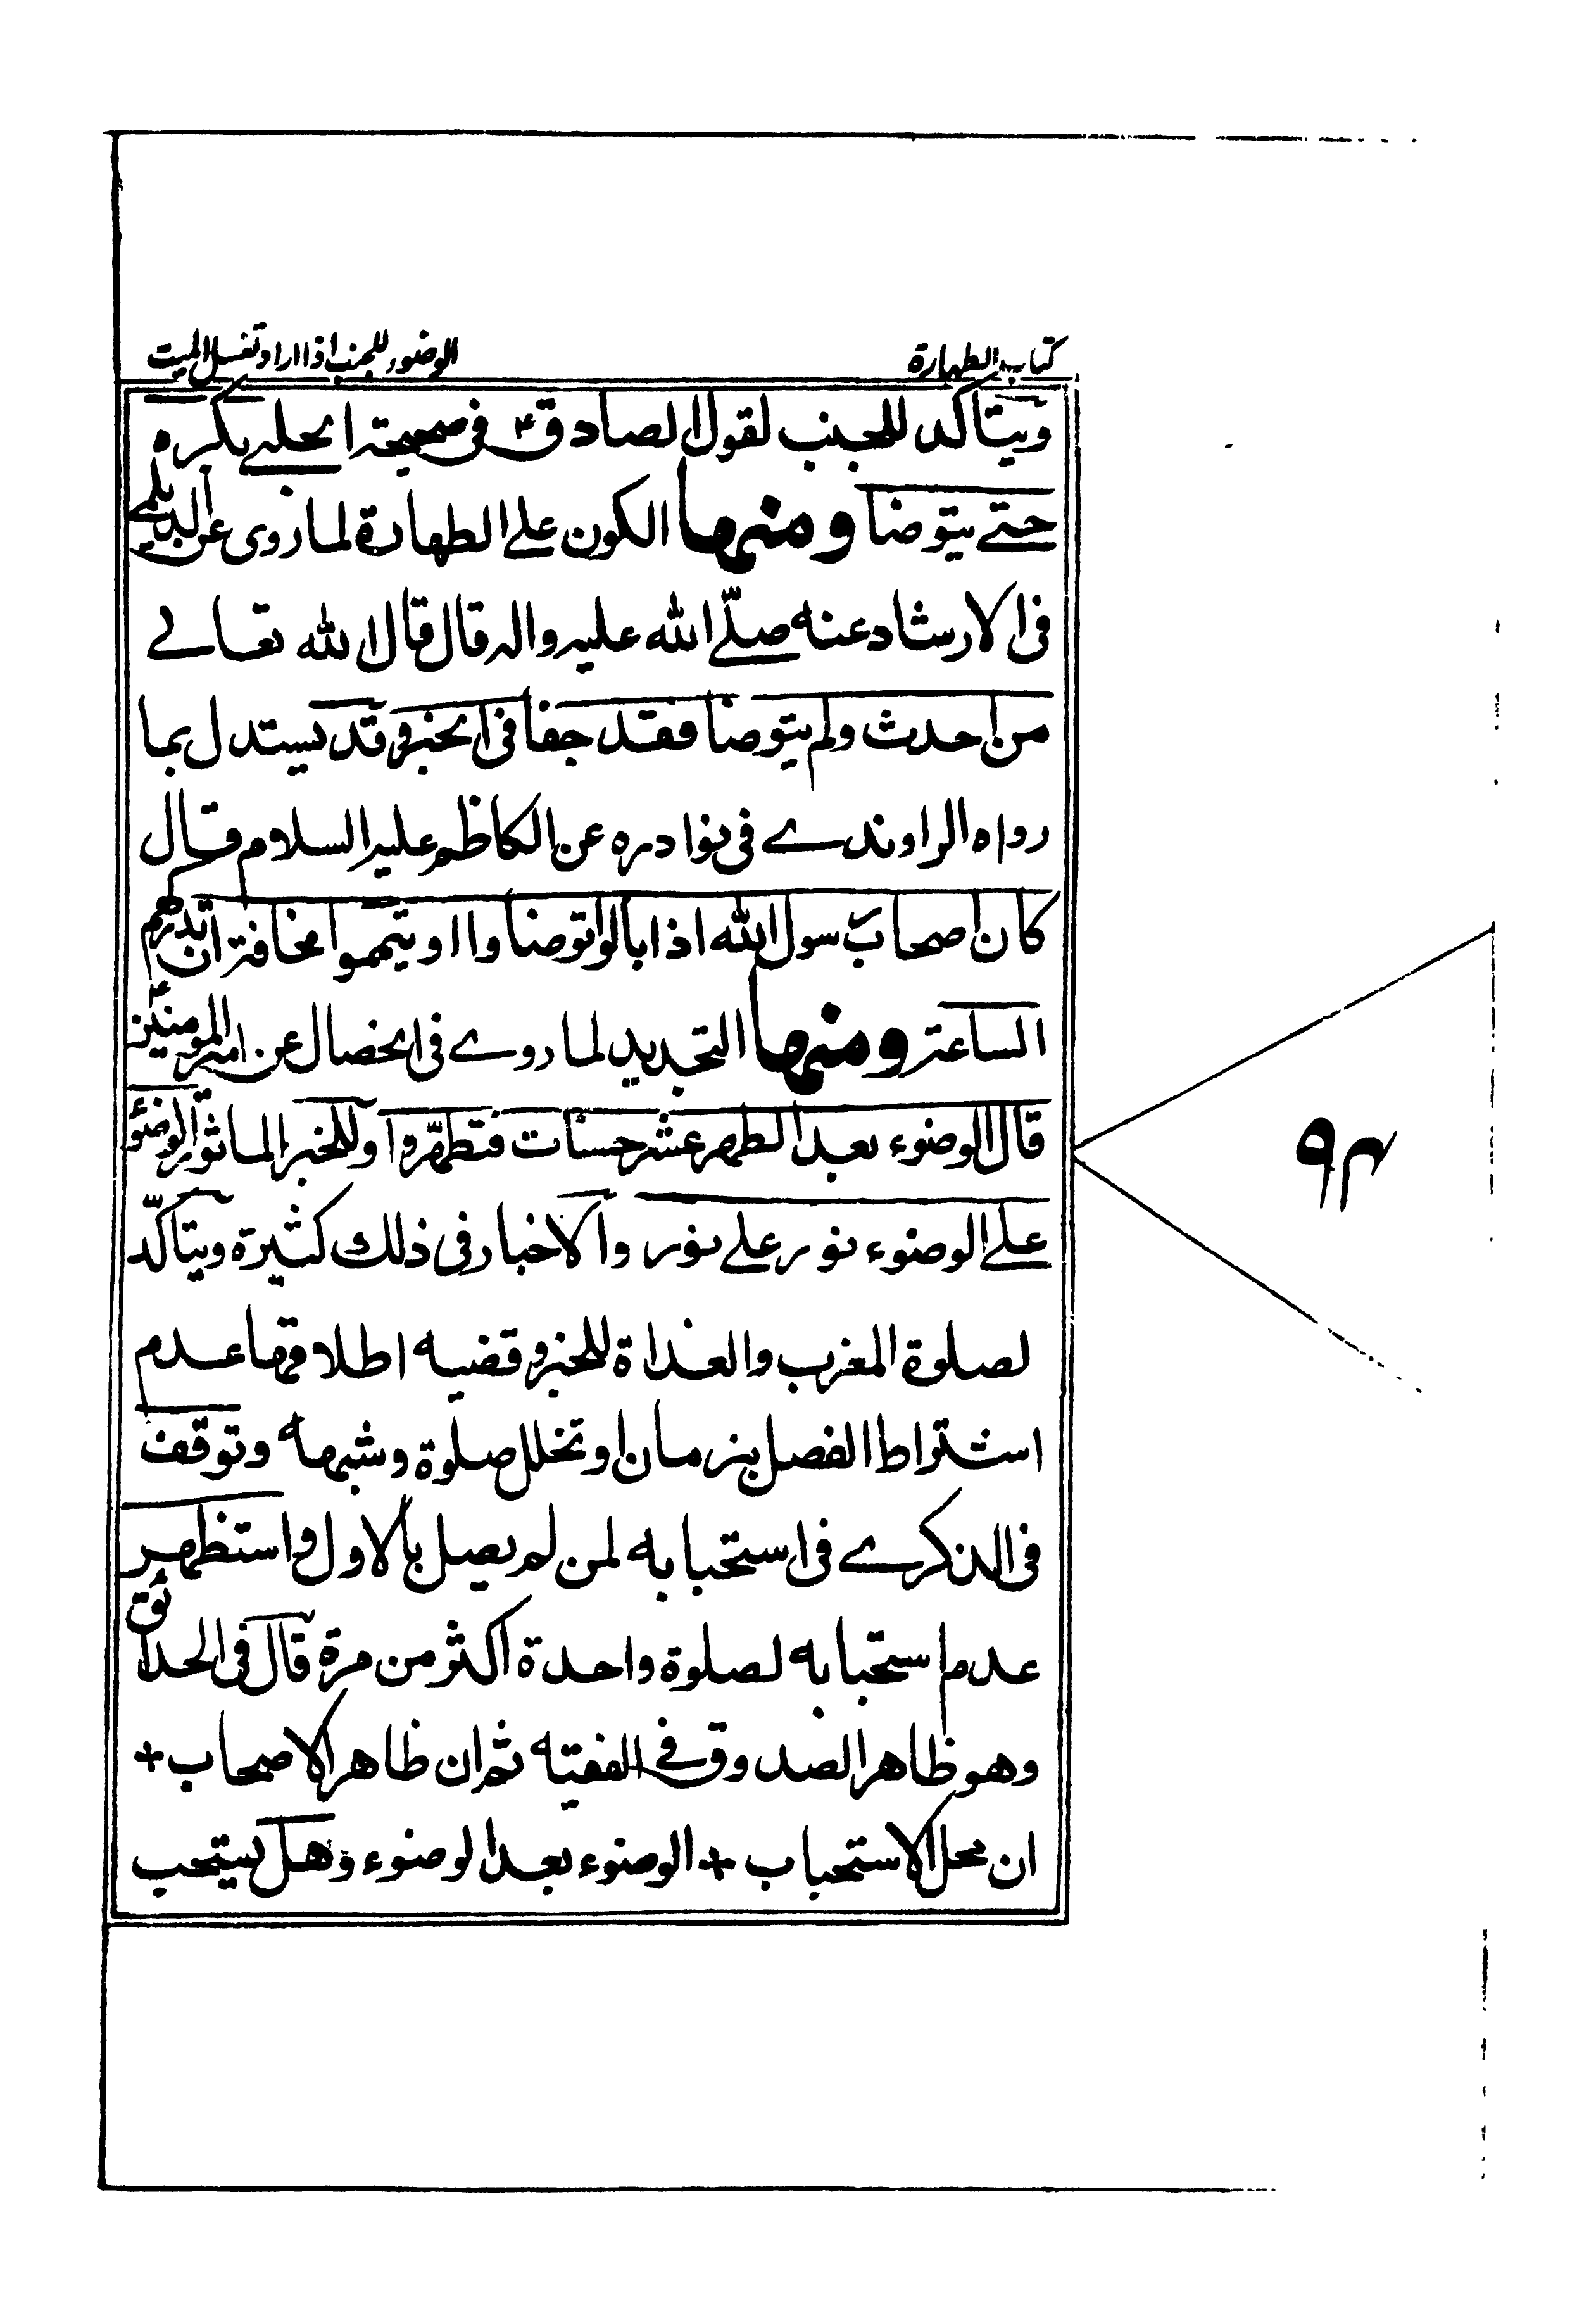 كتاب الطهارة
الوضوء للجنب اذا اراد تغسل الميت
ويتاكد للجنب لقول الصادق ع في صحيحة الحلبي يكره
حتى يتوضا ومنها الكون على الطهارة لما روى عن الديلمي
في الارشاد عنه صلّى الله عليه واله قال قال الله تعالى
من احدث ولم يتوضا فقد جفاني الخبر وقد يستدل بما
رواه الراوندي في نوادره عن الكاظم عليه السلام قال
كان اصحاب رسول الله اذا بالوا توضاوا او يتيمموا مخافة ان تدركهم
الساعة ومنها التجديد لما روى في الخصال عن امير المومنين ع
قال الوضوء بعد الطهر عشر حسنات فتطهّروا وللخبر الماثور الوضوء
على الوضوء نور على نور والاخبار في ذلك كثيرة ويتاكّد
لصلوة المغرب والغداة للخبر وقضيه اطلاقها عدم
اشتراط الفصل بزمان او تخلل صلوة وشبهه وتوقف
في الذكرى في استحبابه لمن لم يصل بالاول واستظهر
عدم استحبابه لصلوة واحدة اكثر من مرة قال في الحدائق
وهو ظاهر الصدوق في الفقيه ثم ان ظاهر الاصحاب +
ان محل الاستحباب + الوضوء بعد الوضوء وهل يستحب
٩٣